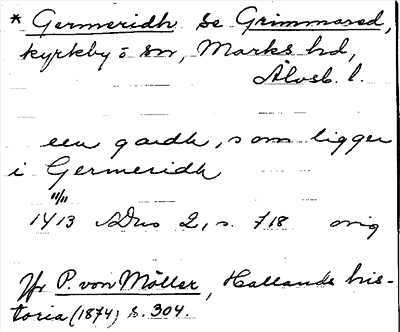 * Germeridh Se Grimmared,
kyrkby o sn, Marks hd,
Älvsb. l.
een gardh, som ligger
i Germeridh
11/11
1413 SDns 2, s. 718 orig
Jfr P. von Möller, Hallands his-
toria (1874) s. 304.